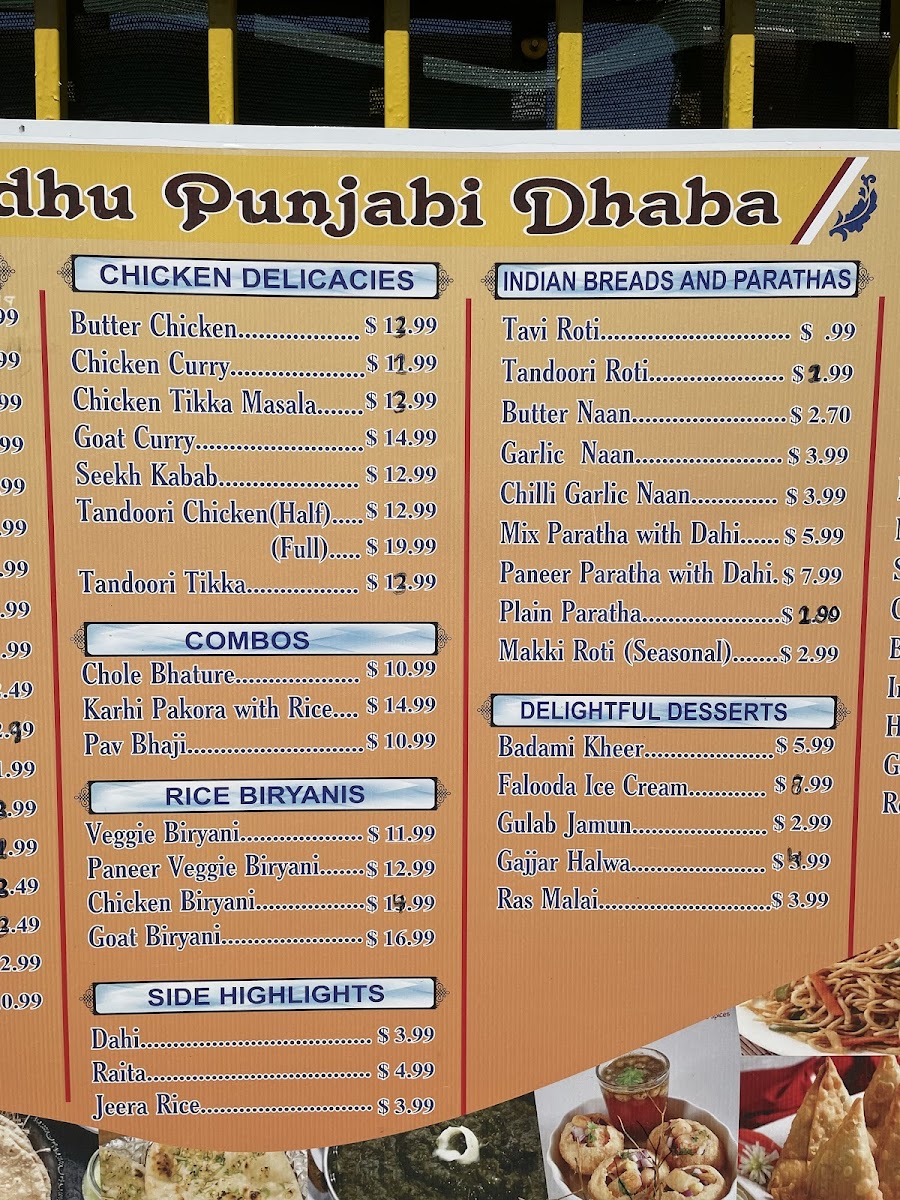 dhu Punjabi Dhaba
.99
.99
.99
.99
.99
.99
.99
.99
.99
.49
.99
1.99
.99
.99
.49
.49
2.99
0.99
CHICKEN DELICACIES
Butter Chicken.................... $ 13.99
Chicken Curry...................... $ 11.99
Chicken Tikka Masala....... $ 13.99
Goat Curry........................... $ 14.99
Seekh Kabab....................... $ 12.99
Tandoori Chicken(Half)..... $ 12.99
(Full)..... $ 19.99
Tandoori Tikka.................. $ 13.99
COMBOS
Chole Bhature.................... $ 10.99
Karhi Pakora with Rice.... $ 14.99
Pav Bhaji............................ $ 10.99
RICE BIRYANIS
Veggie Biryani................... $ 11.99
Paneer Veggie Biryani....... $ 12.99
Chicken Biryani................. $ 14.99
Goat Biryani....................... $ 16.99
SIDE HIGHLIGHTS
Dahi..................................... $ 3.99
Raita.................................... $ 4.99
Jeera Rice........................... $ 3.99
INDIAN BREADS AND PARATHAS
Tavi Roti.............................. $ .99
Tandoori Roti...................... $ .99
Butter Naan......................... $ 2.70
Garlic Naan........................ $ 3.99
Chilli Garlic Naan............. $ 3.99
Mix Paratha with Dahi...... $ 5.99
Paneer Paratha with Dahi. $ 7.99
Plain Paratha...................... $ 2.99
Makki Roti (Seasonal)....... $ 2.99
DELIGHTFUL DESSERTS
Badami Kheer..................... $ 5.99
Falooda Ice Cream............ $ .99
Gulab Jamun...................... $ 2.99
Gajjar Halwa...................... $ 4.99
Ras Malai............................ $ 3.99